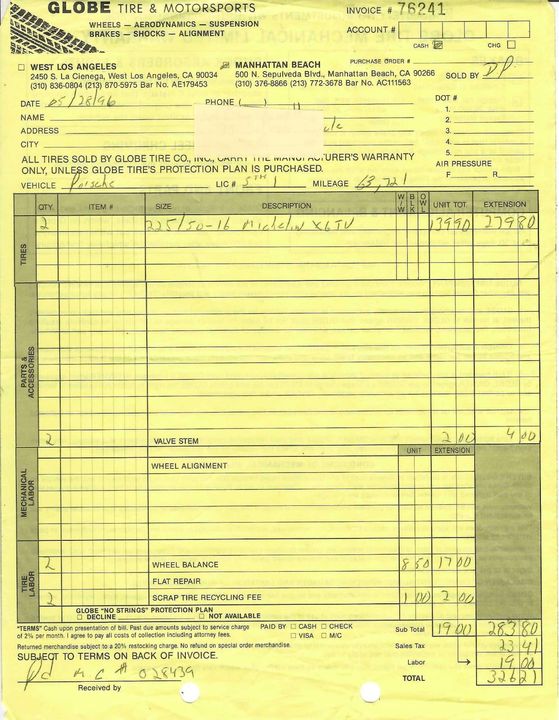 GLOBE TIRE & MOTORSPORTS
WHEELS — AERODYNAMICS — SUSPENSION
BRAKES — SHOCKS — ALIGNMENT
INVOICE # 76241
ACCOUNT #
CASH CHG
PURCHASE ORDER #
WEST LOS ANGELES
2450 S. La Cienega, West Los Angeles, CA 90034
(310) 836-0804 (213) 870-5975 Bar No. AE179453
MANHATTAN BEACH
500 N. Sepulveda Blvd., Manhattan Beach, CA 90266
(310) 376-8866 (213) 772-3678 Bar No. AC111563
SOLD BY DP
DATE 05/28/96 PHONE ( )
NAME
ADDRESS
CITY
DOT #
1.
2.
3.
4.
5.
AIR PRESSURE
F R
ALL TIRES SOLD BY GLOBE TIRE CO., INC., CARRY THE MANUFACTURER'S WARRANTY
ONLY, UNLESS GLOBE TIRE'S PROTECTION PLAN IS PURCHASED.
VEHICLE Porsche LIC # 5TH 1 MILEAGE 63,721
QTY. ITEM # SIZE DESCRIPTION W/W BLK OWL UNIT TOT. EXTENSION
TIRES
2 225/50-16 Michelin 139 90 279 80
PARTS & ACCESSORIES
2 VALVE STEM 2 00 4 00
UNIT EXTENSION
MECHANICAL LABOR
WHEEL ALIGNMENT
TIRE LABOR
2 WHEEL BALANCE 8 50 17 00
FLAT REPAIR
2 SCRAP TIRE RECYCLING FEE 1 00 2 00
GLOBE "NO STRINGS" PROTECTION PLAN
DECLINE NOT AVAILABLE
"TERMS" Cash upon presentation of bill. Past due amounts subject to service charge
of 2% per month. I agree to pay all costs of collection including attorney fees.
PAID BY CASH CHECK
VISA M/C
Returned merchandise subject to a 20% restocking charge. No refund on special order merchandise.
SUBJECT TO TERMS ON BACK OF INVOICE.
Sub Total 19 00 283 80
Sales Tax 23 41
Labor 19 00
TOTAL 326 21
Pd MC # 028439
Received by